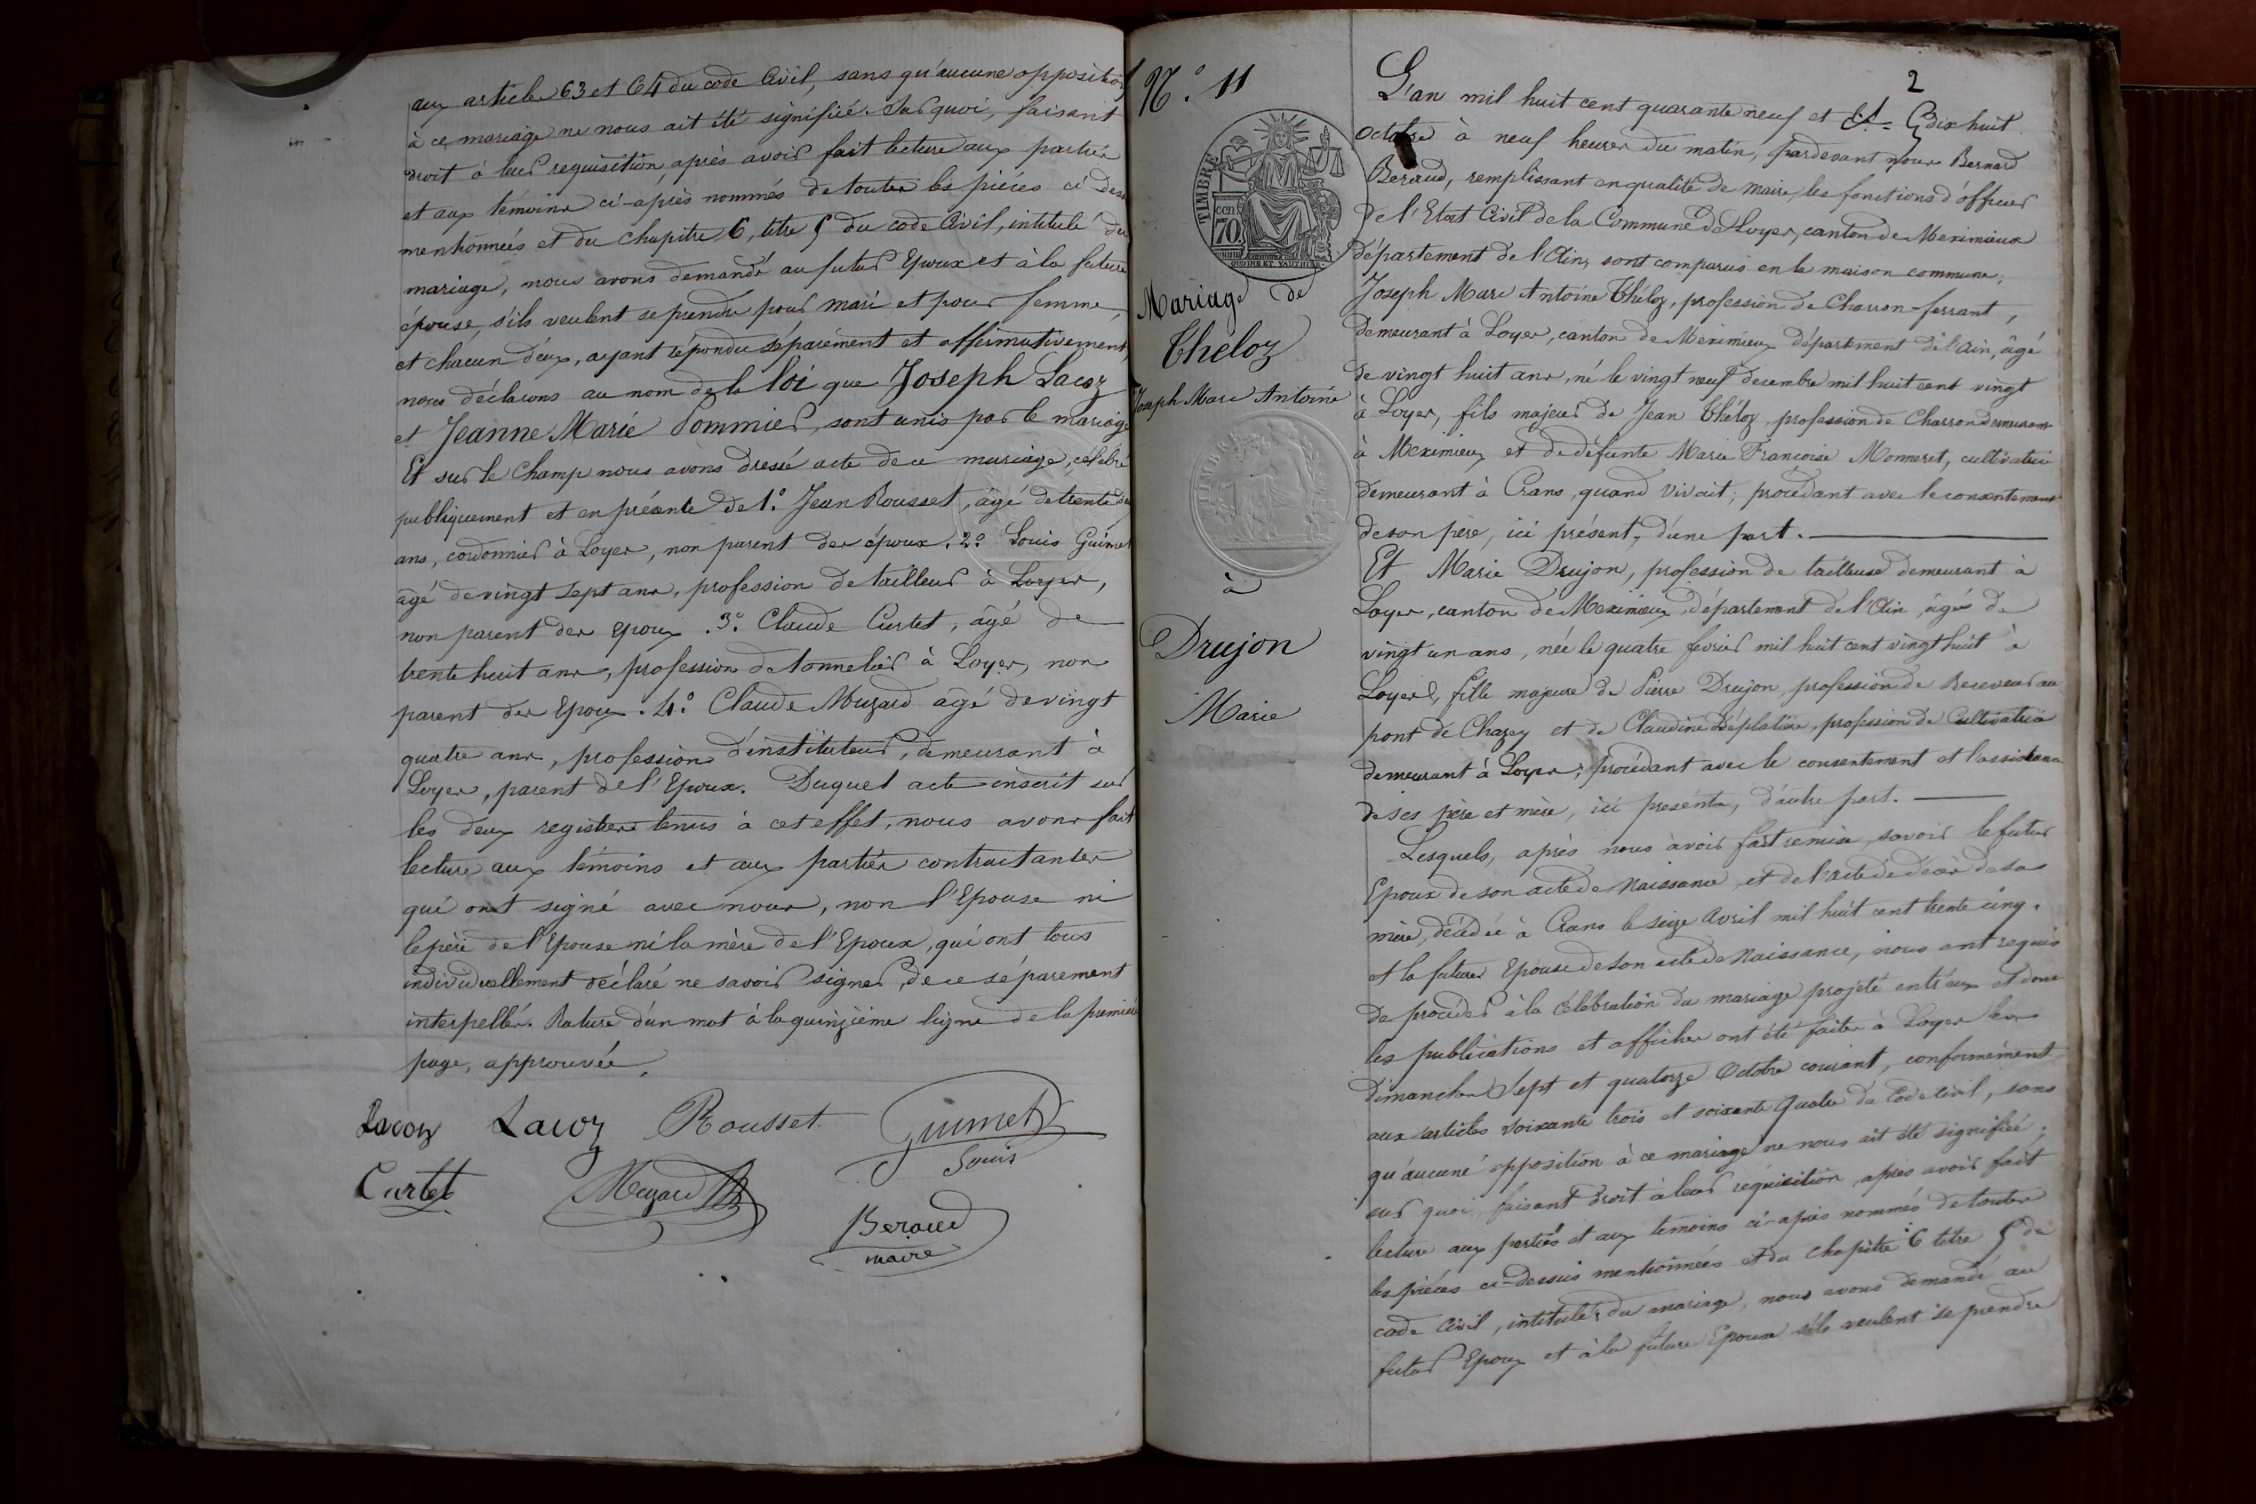 aux articles 63 et 64 du code Civil, sans qu'aucune opposition
à ce mariage ne nous ait été signifiée. Sur quoi, faisant
droit à leur requisition, après avoir fait lecture aux parties
et aux témoins ci-après nommés de toutes les pièces ci dessus
mentionnées et du chapitre 6, titre 5 du code Civil, intitulé du
mariage, nous avons demandé au futur Epoux et à la future
épouse, s'ils veulent se prendre pour mari et pour femme,
et chacun d'eux, ayant répondu séparément et affirmativement,
nous déclarons au nom de la loi que Joseph Lacoz
et Jeanne Marie Pommier, sont unis par le mariage
Et sur le champ nous avons dressé acte de ce mariage, célébré
publiquement et en présence de 1.º Jean Rousset, âgé de trente
ans, cordonnier à Loyes, non parent des époux. 2.º Louis Guimet
âgé de vingt sept ans, profession de tailleur à Loyes,
non parent des epoux. 3.º Claude Curtet, âgé de
trente huit ans, profession de tonnelier à Loyes, non
parent des Epoux. 4.º Claude Muzard agé de vingt
quatre ans, profession d'instituteur, demeurant à
Loyes, parent de l'Epoux. Duquel acte inscrit sur
les deux registres tenus à cet effet, nous avons fait
lecture aux témoins et aux parties contractantes
qui ont signé avec nous, non l'Epouse ni
le père de l'Epouse ni la mère de l'Epoux, qui ont tous
individuellement déclaré ne savoir signer, de ce séparement
interpellés. Rature d'un mot à la quinzième ligne de la première
page, approuvée.
Lacoz Lacoz Rousset Guimet
Louis
Curtet Muzard
Beraud
maire
N.º 11
TIMBRE
70
Mariage de
Theloz
Joseph Marc Antoine
à
Drujon
Marie
2
L'an mil huit cent quarante neuf et le dix huit
Octobre à neuf heures du matin, pardevant nous Bernard
Beraud, remplissant en qualité de Maire, les fonctions d'officier
de l'Etat Civil de la Commune de Loyes, canton de Meximieux
département de l'Ain, sont comparus en la maison commune,
Joseph Marc Antoine Théloz, profession de Charron-ferrant,
demeurant à Loyes, canton de Meximieux département de l'Ain, âgé
de vingt huit ans, né le vingt neuf décembre mil huit cent vingt
à Loyes, fils majeur de Jean Théloz, profession de Charron demeurant
à Meximieux et de défunte Marie Françoise Monneret, cultivatrice
demeurant à Crans, quand vivait, procédant avec le consentement
de son père, ici présent, d'une part.
Et Marie Drujon, profession de tailleuse demeurant à
Loyes, canton de Meximieux, département de l'Ain, âgée de
vingt un ans, née le quatre fevrier mil huit cent vingt huit à
Loyes, fille majeure de Pierre Drujon, profession de Receveur au
pont de Chazey et de Claudine Déplatière, profession de Cultivatrice
demeurant à Loyes, procédant avec le consentement et l'assistance
de ses père et mère, ici présents, d'autre part.
Lesquels, après nous avoir fait remise, savoir le futur
Epoux de son acte de Naissance, et de l'acte de décès de sa
mère, décédée à Crans le seize Avril mil huit cent trente cinq.
et la future Epouse de son acte de Naissance, nous ont requis
de procéder à la célébration du mariage projeté entr'eux et dont
les publications et affiches ont été faites à Loyes les
Dimanches Sept et quatorze Octobre courant, conformément
aux articles soixante trois et soixante quatre du Code Civil, sans
qu'aucune opposition à ce mariage ne nous ait été signifiée;
sur quoi, faisant droit à leur réquisition, après avoir fait
lecture aux parties et aux témoins ci-après nommés de toutes
les pièces ci-dessus mentionnées et du chapitre 6 titre 5 du
code Civil, intitulé du mariage, nous avons demandé au
futur Epoux et à la future Epouse s'ils veulent se prendre